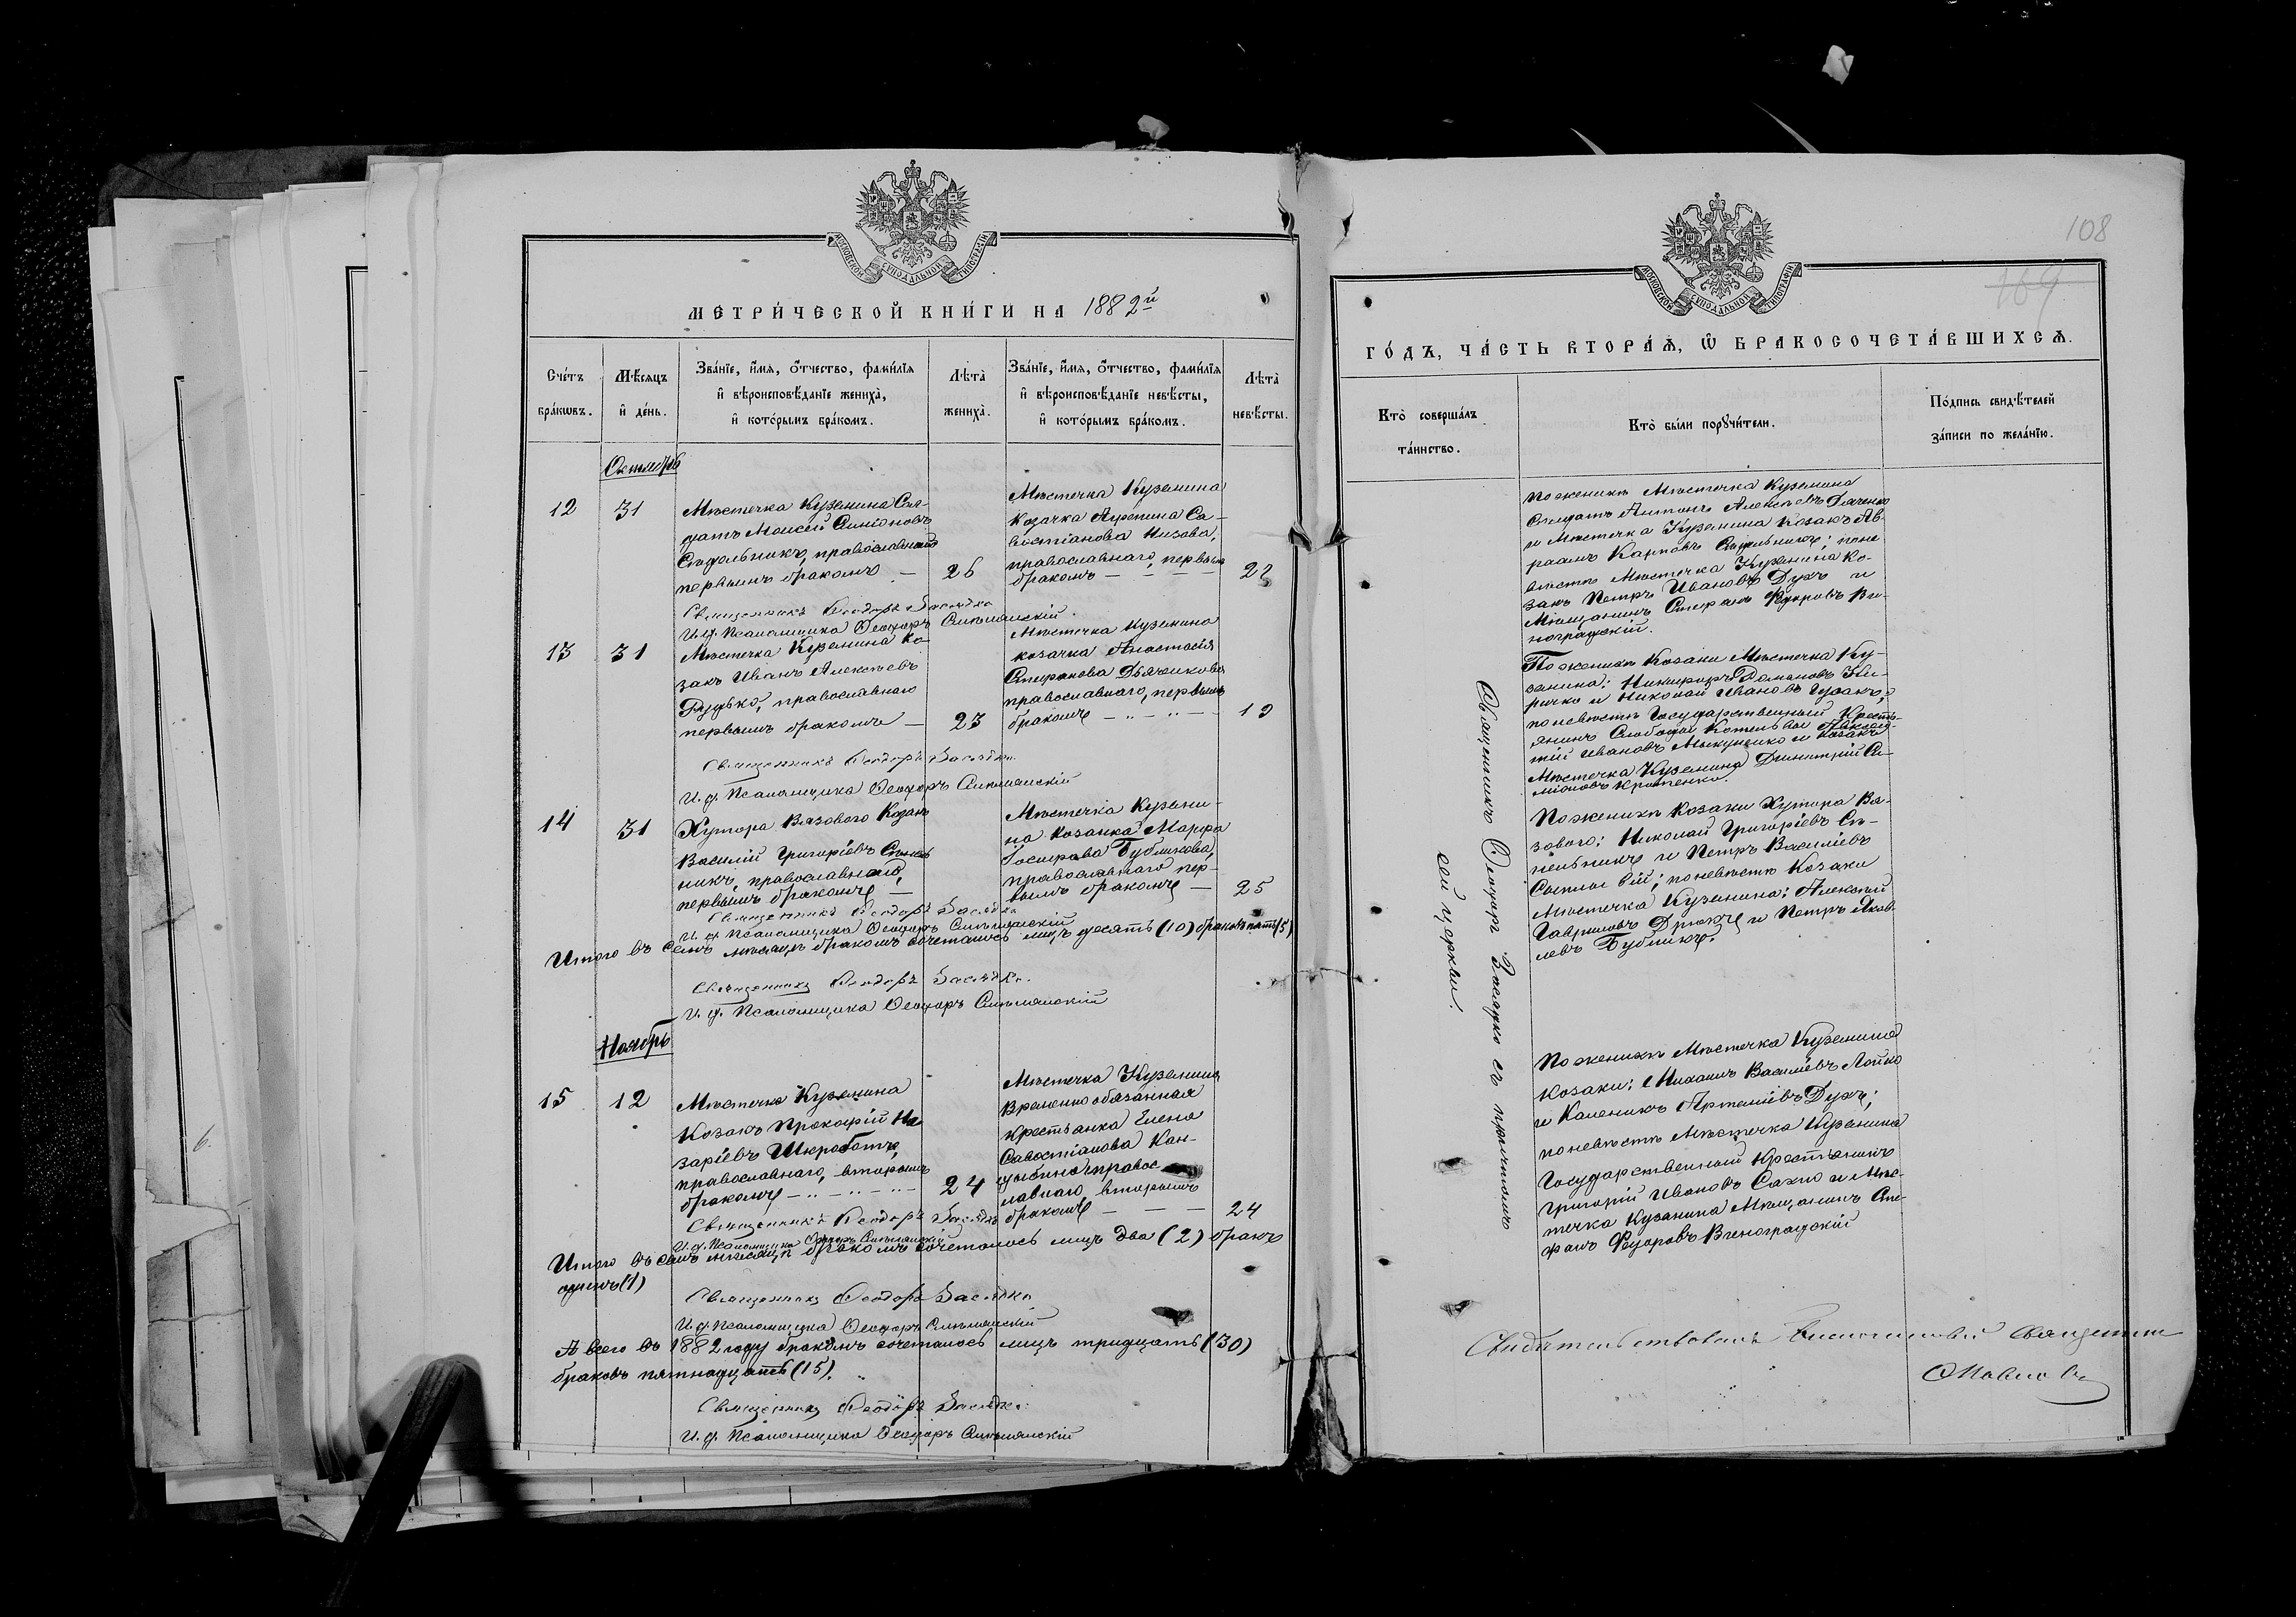 МОСКОВСКОЙ СУНОДАЛЬНОЙ ТИПОГРАФІИ
МЕТРИ́ЧЕСКОЙ КНИ́ГИ НА 1882й
Сче́тъ бра́кѡвъ.
Мѣ́сяцъ и҆ де́нь.
Зва́нїе, и҆́мя, ѻ҆́тчество, фами́лїя
и҆ вѣроисповѣ́данїе жениха̀,
и҆ кото́рымъ бра́комъ.
Лѣта̀ жениха̀.
Зва́нїе, и҆́мя, ѻ҆́тчество, фами́лїя
и҆ вѣроисповѣ́данїе невѣ́сты,
и҆ кото́рымъ бра́комъ.
Лѣта̀ невѣ́сты.
Октябрь
12
31
Мѣстечка Куземина Сол-
датъ Моисей Симіоновъ
Сидельникъ, православнаго
первымъ бракомъ —
26
Мѣстечка Куземина
Козачка Агрепина Са-
востіанова Низова,
православнаго, первымъ
бракомъ — — —
22
Священникъ Ѳеодоръ Засядко
И. д. Псаломщика Ѳеодоръ Синьшанскій
13
31
Мѣстечка Куземина Ко-
закъ Иванъ Алексѣевъ
Рудько, православнаго
первымъ бракомъ —
23
Мѣстечка Куземина
козачка Анастасія
Стефанова Дьячкова
православнаго, первымъ
бракомъ
19
Священникъ Ѳеодоръ Засядко.
И. д. Псаломщика Ѳеодоръ Синьшанскій
14
31
Хутора Вязового Козакъ
Василій Григоріевъ
никъ, православнаго,
первымъ бракомъ —
Мѣстечка Куземи-
на Козачка Марфа
Іосифова Бубликова,
православнаго пер-
вымъ бракомъ —
25
Священникъ Ѳеодоръ Засядко
И. д. Псаломщика Ѳеодоръ Синьшанскій
Итого въ семъ мѣсяцѣ бракомъ сочеталось лицъ десять (10) браковъ пять (5)
Священникъ Ѳеодоръ Засядко.
И. д. Псаломщика Ѳеодоръ Синьшанскій
Ноябрь
15
12
Мѣстечка Куземина
Козакъ Прокофій На-
заріевъ Шкроботъ,
православнаго, вторымъ
бракомъ
24
Мѣстечка Куземина
Временно обязанная
крестьянка Елена
Савостіанова Кан-
цыбина правос-
лавнаго, вторымъ
бракомъ — — —
24
Священникъ Ѳеодоръ Засядко
И. д. Псаломщика Ѳеодоръ Синьшанскій
Итого въ семъ мѣсяцѣ бракомъ сочеталось лицъ два (2) бракъ
одинъ (1)
Священникъ Ѳеодоръ Засядко
И. д. Псаломщика Ѳеодоръ Синьшанскій
А всего въ 1882 году бракомъ сочеталось лицъ тридцать (30)
браковъ пятнадцать (15).
Священникъ Ѳеодоръ Засядко.
И. д. Псаломщика Ѳеодоръ Синьшанскій
108
169
МОСКОВСКОЙ СУНОДАЛЬНОЙ ТИПОГРАФІИ
ГО́ДЪ, ЧА́СТЬ ВТОРА́Ѧ, Ѡ҆ БРАКОСОЧЕТА́ВШИХСѦ.
Кто̀ соверша́лъ
та́инство.
Кто̀ бы́ли порꙋчи́тели.
По́дпись свидѣ́телей
за́писи по жела́нїю.
Священникъ Ѳеодоръ Засядко съ причтомъ
сей церкви.
По женихѣ Мѣстечка Куземина
Солдатъ Антонъ Алексѣевъ Дяченко
и Мѣстечка Куземина Козакъ Ав-
раамъ Карповъ Сидельникъ; по не-
вѣстѣ Мѣстечка Куземина Ко-
закъ Петръ Ивановъ Духъ и
Мѣщанинъ Стефанъ Ѳедоровъ Ви-
ноградскій.
По женихѣ Козаки Мѣстечка Ку-
земина: Никифоръ Романовъ Ки-
ричко и Николай Ивановъ
по невѣстѣ Государственный Кресть-
янинъ Слободы Котельвы
тій Ивановъ и Козакъ
Мѣстечка Куземина Димитрій Си-
міоновъ
По женихѣ Козаки Хутора Вя-
зового: Николай Григоріевъ
и Петръ Василіевъ
по невѣстѣ Козаки
Мѣстечка Куземина: Алексѣй
Гавриловъ и Петръ Яков-
левъ Бубликъ.
По женихѣ Мѣстечка Куземина
Козаки: Михаилъ Василіевъ Лойко
и Каленикъ Артеміевъ Духъ;
по невѣстѣ Мѣстечка Куземина
Государственный Крестьянинъ
Григорій Ивановъ Сахно и Мѣс-
течка Куземина Мѣщанинъ Сте-
фанъ Ѳедоровъ Виноградскій
Свидѣтельствовалъ Благочинный Священникъ
Павловъ